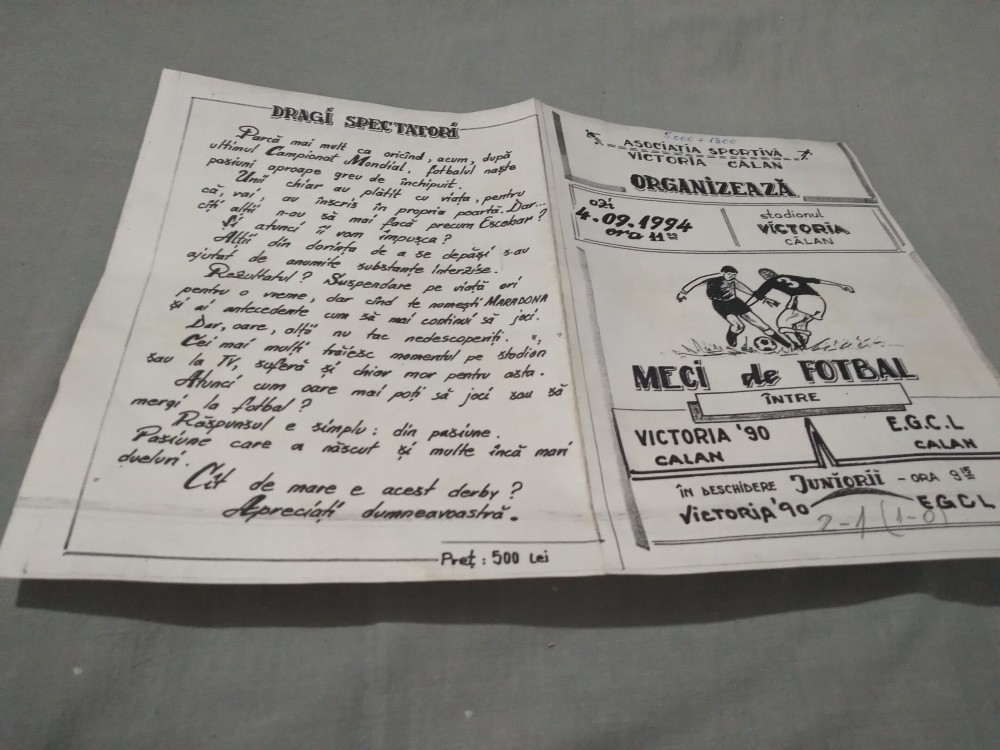 DRAGI SPECTATORI
Parcă mai mult ca oricînd, acum, după
ultimul Campionat Mondial, fotbalul naște
pasiuni aproape greu de închipuit.
Unii chiar au plătit cu viața, pentru
că, vai, au înscris în propria poartă. Dar...
cîți alții n-au să mai facă precum Escobar?
Și atunci îi vom împușca?
Alții din dorința de a se depăși s-au
ajutat de anumite substanțe interzise.
Rezultatul? Suspendare pe viață ori
pentru o vreme, dar cînd te numești MARADONA
și ai antecedente cum să mai continui să joci.
Dar, oare, alții nu tac nedescoperiți.
Cei mai mulți trăiesc momentul pe stadion
sau la TV, suferă și chiar mor pentru asta.
Atunci cum oare mai poți să joci sau să
mergi la fotbal?
Răspunsul e simplu: din pasiune.
Pasiune care a născut și multe încă mari
dueluri.
Cît de mare e acest derby?
Apreciați dumneavoastră.
Preț: 500 Lei
5000 + 1300
ASOCIAȚIA SPORTIVĂ
VICTORIA CĂLAN
ORGANIZEAZĂ
azi
4.09.1994
ora 11⁰⁰
stadionul
VICTORIA
CĂLAN
3
MECI de FOTBAL
ÎNTRE
VICTORIA '90
CALAN
E.G.C.L
CALAN
ÎN DESCHIDERE JUNIORII - ORA 9¹⁵
VICTORIA '90
EGCL
2-1 (1-0)